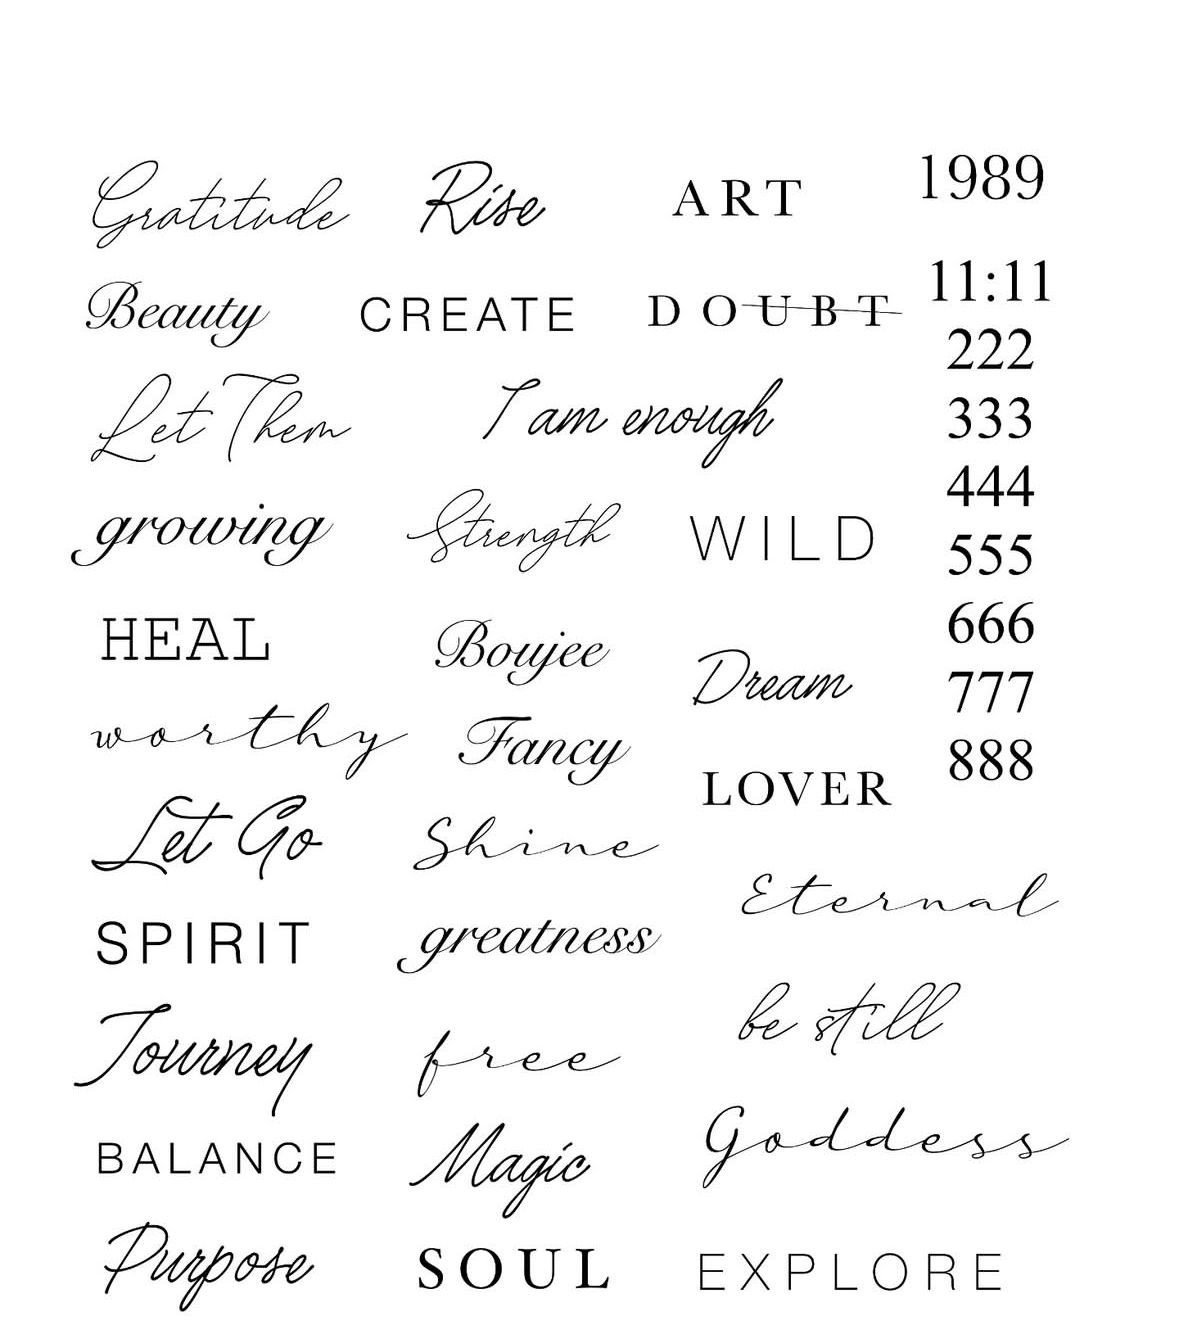 Gratitude
Rise
ART
1989
Beauty
CREATE
DOUBT
11:11
222
Let Them
I am enough
333
444
growing
Strength
WILD
555
HEAL
Boujee
666
Dream
777
worthy
Fancy
LOVER
888
Let Go
Shine
Eternal
SPIRIT
greatness
be still
Journey
free
Goddess
BALANCE
Magic
Purpose
SOUL
EXPLORE